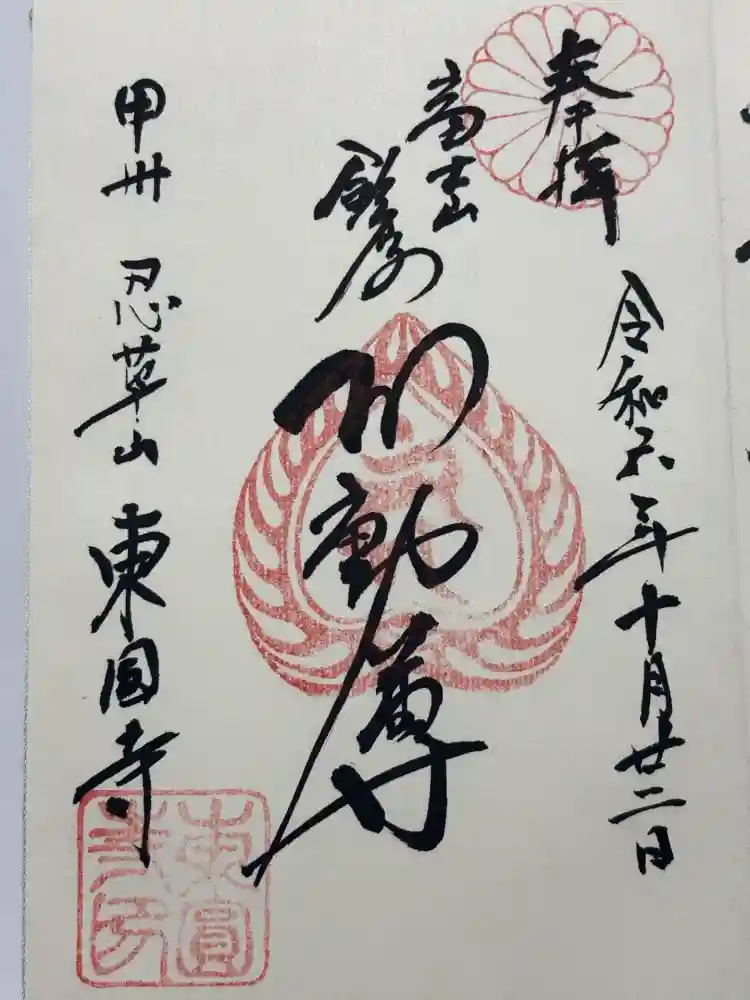 奉拝
令和六年十月廿二日
富士山
不動尊
甲州 忍草山 東圓寺
東圓
寺印